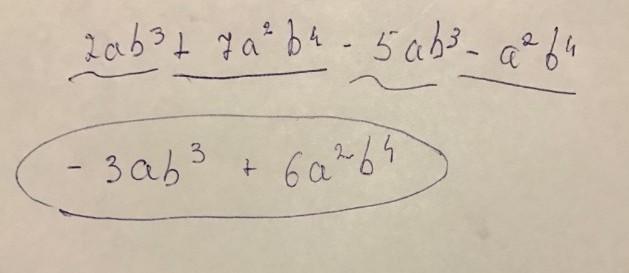 2ab³ + 7a²b⁴ - 5ab³ - a²b⁴
- 3ab³ + 6a²b⁴